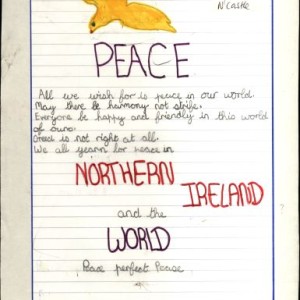 N'Castle
PEACE
All we wish for is peace in our world.
May there be harmony not strife.
Everyone be happy and friendly in this world
of ours.
Greed is not right at all.
We all yearn for peace in
NORTHERN
IRELAND
and the
WORLD
Peace perfect Peace